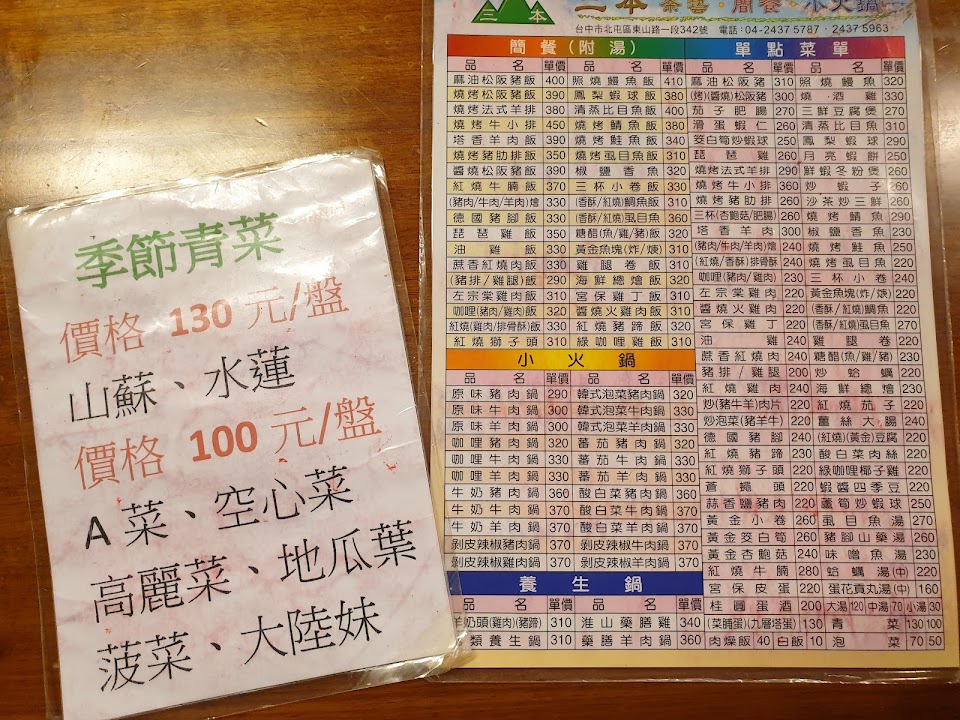 季節青菜
價格 130 元/盤
山蘇、水蓮
價格 100 元/盤
A菜、空心菜
高麗菜、地瓜葉
菠菜、大陸妹
三本
三本 茶藝·簡餐·小火鍋
台中市北屯區東山路一段342號 電話:04-2437 5787 · 2437 5963
簡餐(附湯)
品名 單價 品名 單價
麻油松阪豬飯 400 照燒鰻魚飯 410
燒烤松阪豬飯 390 鳳梨蝦球飯 380
燒烤法式羊排 380 清蒸比目魚飯 400
燒烤牛小排 450 燒烤鯖魚飯 380
塔香羊肉飯 390 燒烤鮭魚飯 340
燒烤豬肋排飯 350 燒烤虱目魚飯 310
醬燒松阪豬飯 390 椒鹽香魚 320
紅燒牛腩飯 370 三杯小卷飯 330
(豬肉/牛肉/羊肉)燴 330 (香酥/紅燒)鯛魚飯 310
德國豬腳飯 330 (香酥/紅燒)虱目魚 360
琵琶雞飯 350 糖醋(魚/雞/豬)飯 320
油雞飯 330 黃金魚塊(炸/燴) 310
蔗香紅燒肉飯 330 雞腿卷飯 310
(豬排/雞腿)飯 290 海鮮總燴飯 320
左宗棠雞肉飯 310 宮保雞丁飯 310
咖哩(豬肉/雞肉)飯 310 醬燒火雞肉飯 310
紅燒(雞肉/排骨酥)飯 330 紅燒豬蹄飯 310
紅燒獅子頭 310 綠咖哩雞飯 310
小火鍋
品名 單價 品名 單價
原味豬肉鍋 290 韓式泡菜豬肉鍋 320
原味牛肉鍋 300 韓式泡菜牛肉鍋 330
原味羊肉鍋 300 韓式泡菜羊肉鍋 330
咖哩豬肉鍋 320 蕃茄豬肉鍋 320
咖哩牛肉鍋 330 蕃茄牛肉鍋 330
咖哩羊肉鍋 330 蕃茄羊肉鍋 330
牛奶豬肉鍋 360 酸白菜豬肉鍋 360
牛奶牛肉鍋 370 酸白菜牛肉鍋 370
牛奶羊肉鍋 370 酸白菜羊肉鍋 370
剝皮辣椒豬肉鍋 370 剝皮辣椒牛肉鍋 370
剝皮辣椒雞肉鍋 370 剝皮辣椒羊肉鍋 370
養生鍋
品名 單價 品名 單價
羊奶頭(雞肉)(豬蹄) 310 淮山藥膳雞 340
類養生鍋 310 藥膳羊肉鍋 360
單點菜單
品名 單價 品名 單價
麻油松阪豬 310 照燒鰻魚 320
(烤)(醬燒)松阪豬 300 燒酒雞 330
茄子肥腸 270 三鮮豆腐煲 270
滑蛋蝦仁 260 清蒸比目魚 310
茭白筍炒蝦球 250 鳳梨蝦球 290
琵琶雞 260 月亮蝦餅 250
燒烤法式羊排 290 鮮蝦冬粉煲 260
燒烤牛小排 360 炒蝦子 260
燒烤豬肋排 260 沙茶炒三鮮 260
三杯(杏鮑菇/肥腸) 260 燒烤鯖魚 290
塔香羊肉 300 椒鹽香魚 230
(豬肉/牛肉/羊肉)燴 240 燒烤鮭魚 250
(紅燒/香酥)排骨酥 240 燒烤虱目魚 220
咖哩(豬肉/雞肉) 230 三杯小卷 240
左宗棠雞肉 220 黃金魚塊(炸/燴) 220
醬燒火雞肉 220 (香酥/紅燒)鯛魚 220
宮保雞丁 220 (香酥/紅燒)虱目魚 270
油雞 240 雞腿卷 220
蔗香紅燒肉 240 糖醋(魚/雞/豬) 230
豬排/雞腿 200 炒蛤蠣 220
紅燒雞肉 240 海鮮總燴 230
炒(豬牛羊)肉片 220 紅燒茄子 220
炒泡菜(豬羊牛) 220 薑絲大腸 240
德國豬腳 240 (紅燒)(黃金)豆腐 220
紅燒豬蹄 230 酸白菜肉絲 220
紅燒獅子頭 220 綠咖哩椰子雞 220
蒼蠅頭 220 蝦醬四季豆 220
蒜香鹽豬肉 220 蘆筍炒蝦球 250
黃金小卷 260 虱目魚湯 270
黃金茭白筍 260 豬腳山藥湯 260
黃金杏鮑菇 240 味噌魚湯 230
紅燒牛腩 280 蛤蠣湯(中) 220
宮保皮蛋 220 蛋花貢丸湯(中) 160
桂圓蛋酒 200 大湯 120 中湯 70 小湯 30
(菜脯蛋)(九層塔蛋) 130 青菜 130 100
肉燥飯 40 白飯 10 泡菜 70 50